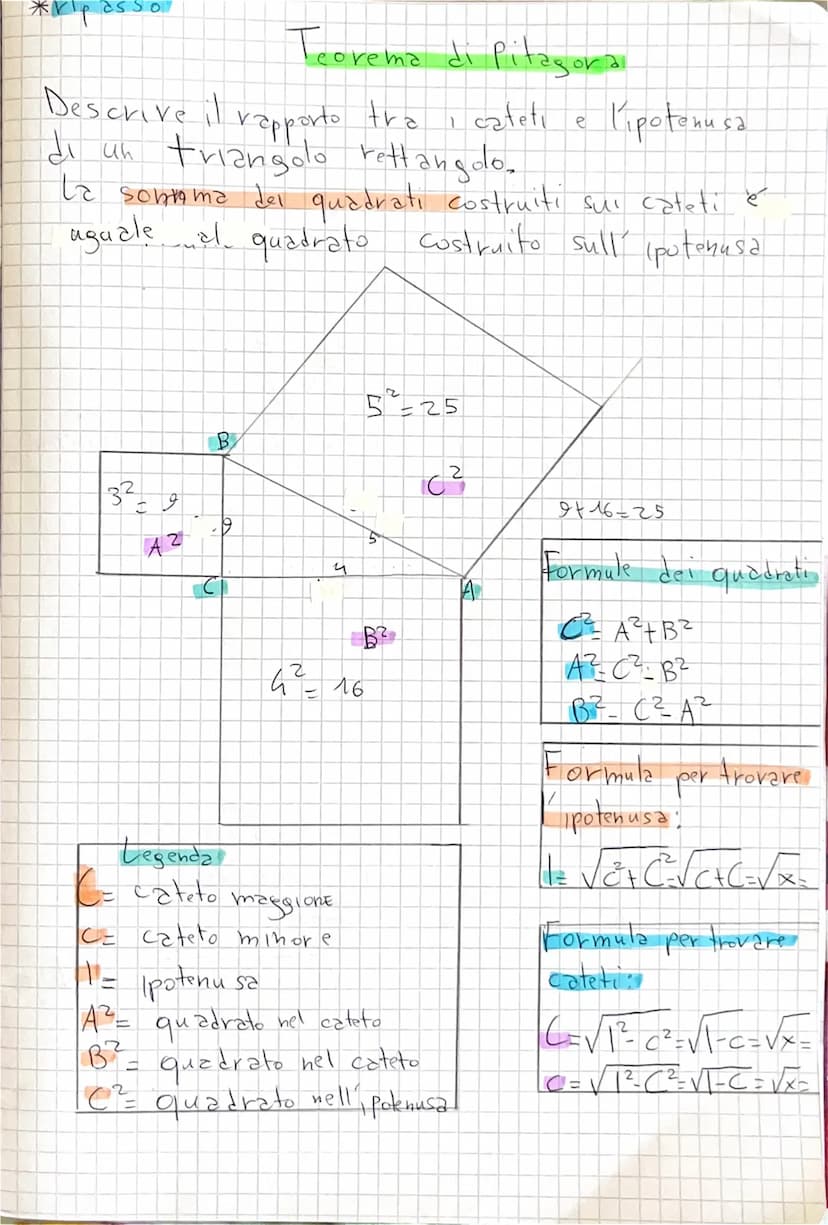 *ripasso
Teorema di Pitagora
Descrive il rapporto tra i cateti e l'ipotenusa
di un triangolo rettangolo.
La somma dei quadrati costruiti sui cateti è
uguale al quadrato costruito sull'ipotenusa
5² = 25
B
C²
3² = 9
9
A²
5
4
C
A
B²
4² = 16
9+16=25
Formule dei quadrati
C² = A²+B²
A² = C² - B²
B² = C² - A²
Formula per trovare
l'ipotenusa:
I = √c²+C² = √c+C = √x =
Formula per trovare
cateti:
C = √I² - c² = √I - c = √x =
c = √I² - C² = √I - C = √x =
Legenda
C = cateto maggiore
c = cateto minore
I = Ipotenusa
A² = quadrato nel cateto
B² = quadrato nel cateto
C² = quadrato nell'ipotenusa